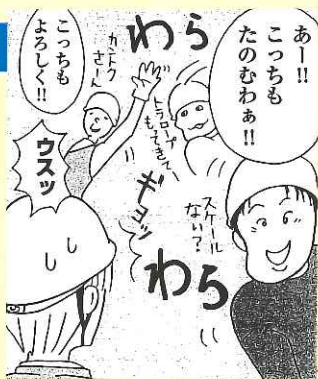 あー!!
こっちも
たのむわぁ!!
わら
カントク
さーん
こっちも
よろしく!!
トラロープ
もってきてー
ギョッ
スケール
ない?
わら
ウスッ